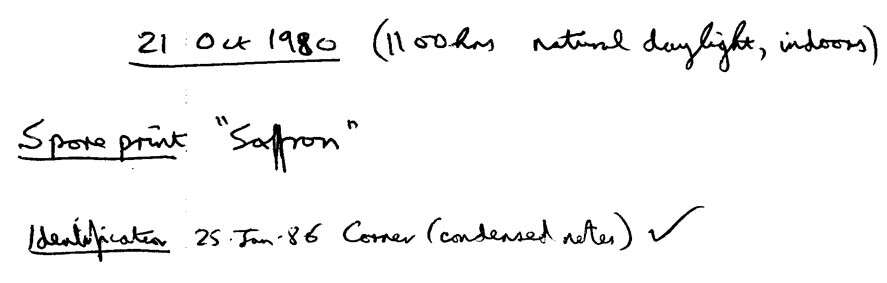 21 Oct 1980 (1100hrs natural daylight, indoors)
Spore print "Saffron"
Identification 25-Jan-86 Corner (condensed notes) ✓